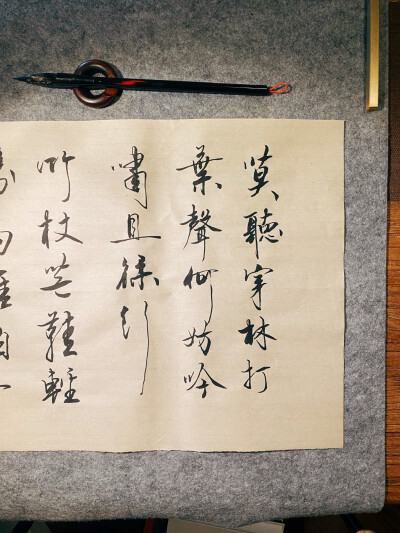 莫聽穿林打
葉聲何妨吟
嘯且徐行
竹杖芒鞋輕